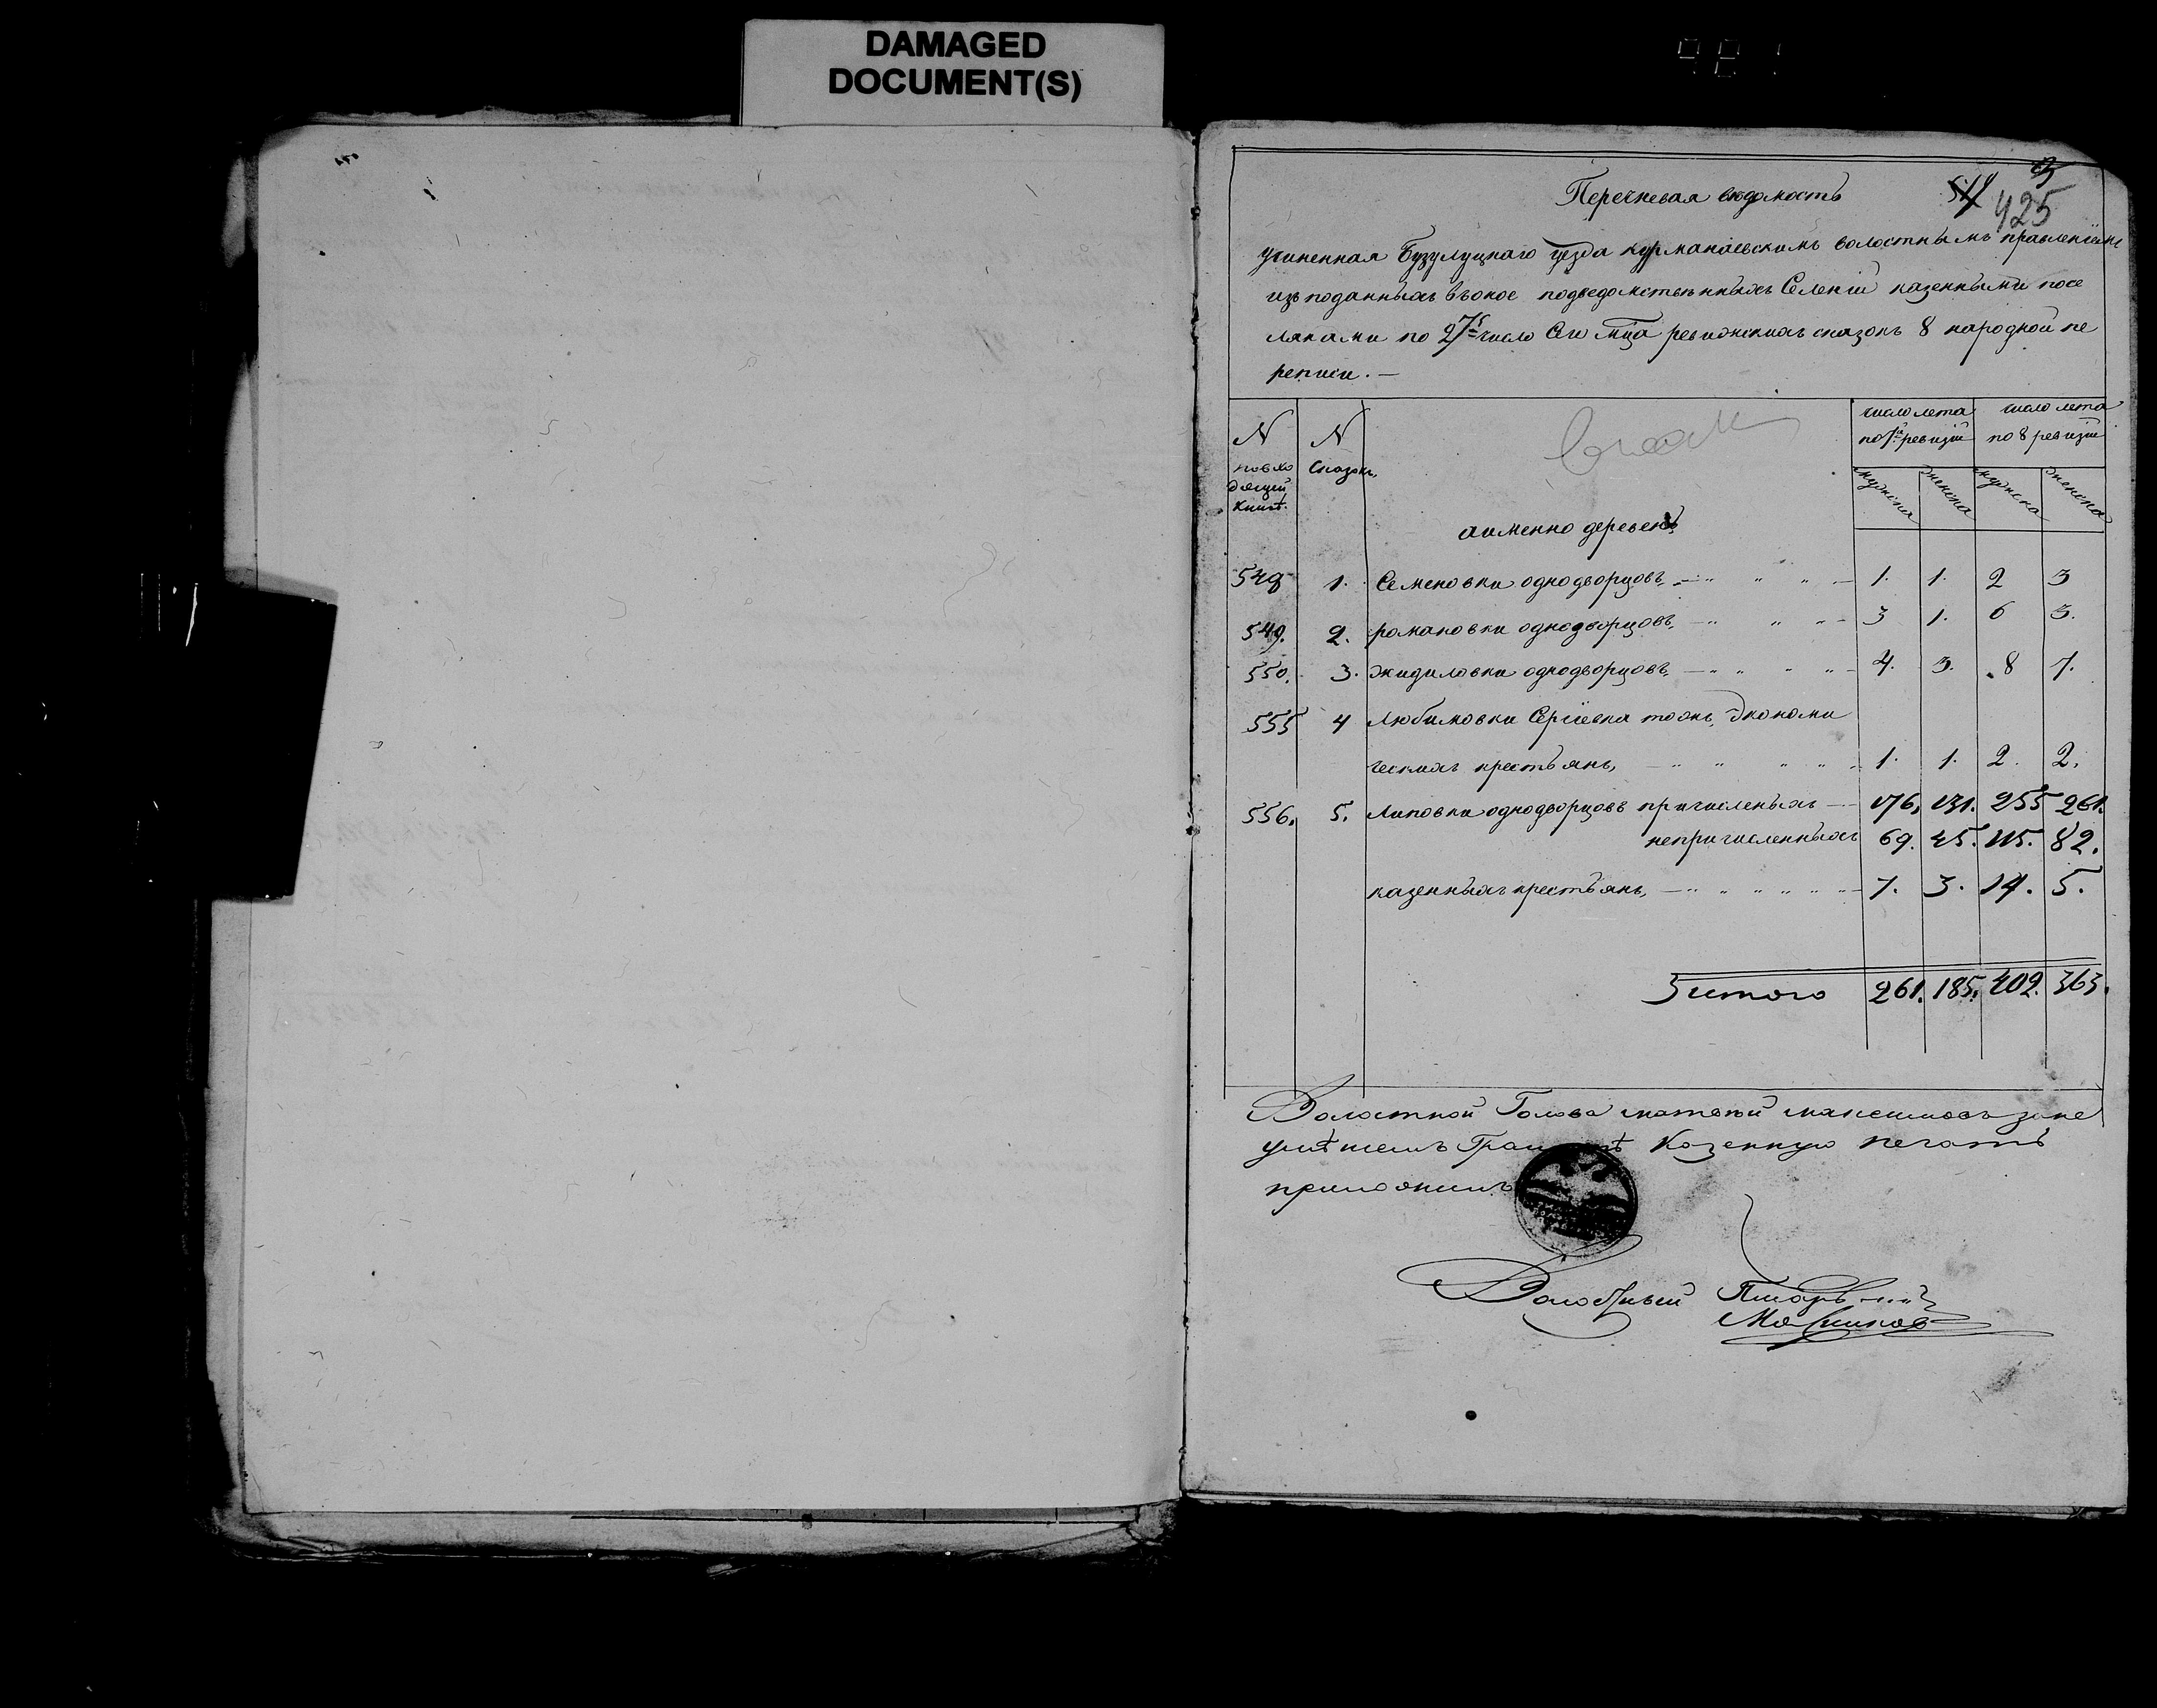 DAMAGED
DOCUMENT(S)
425
Перечневая вѣдомость
учиненная Бузулуцкаго уѣзда курманаевскимъ волостнымъ правленіемъ
изъ поданныхъ въоное подведомственныхъ Селеній казенными посе
лянами по 27е число Сего мца ревижскихъ сказокъ 8 народной пе
реписи. —
N
повхо
дящей
книгѣ.
N
Сказокъ,
аименно деревень
число лета
по 7й ревизіи
число лета
по 8 ревизіи
мужска
женска
мужска
женска
548 1. Семеновки однодворцовъ, — 1. 1. 2 3
549. 2. романовки однодворцовъ, — 3 1. 6 3.
550. 3. жидиловки однодворцовъ, — 4. 3. 8 7.
555 4 Любимовки Сергіевка тожъ, Экономи
ческихъ крестьянъ, — 1. 1. 2. 2.
556. 5. Липовки однодворцовъ причисленыхъ — 176, 131. 255 261.
непричисленныхъ 69. 45. 115. 82.
казенныхъ крестьянъ, — 7. 3. 14. 5.
итого 261. 185. 402. 363.
Волостной Голова матвѣй максимовъ зане
умѣніемъ Грамотѣ Казенную печать
приложилъ
Волостный Писарь